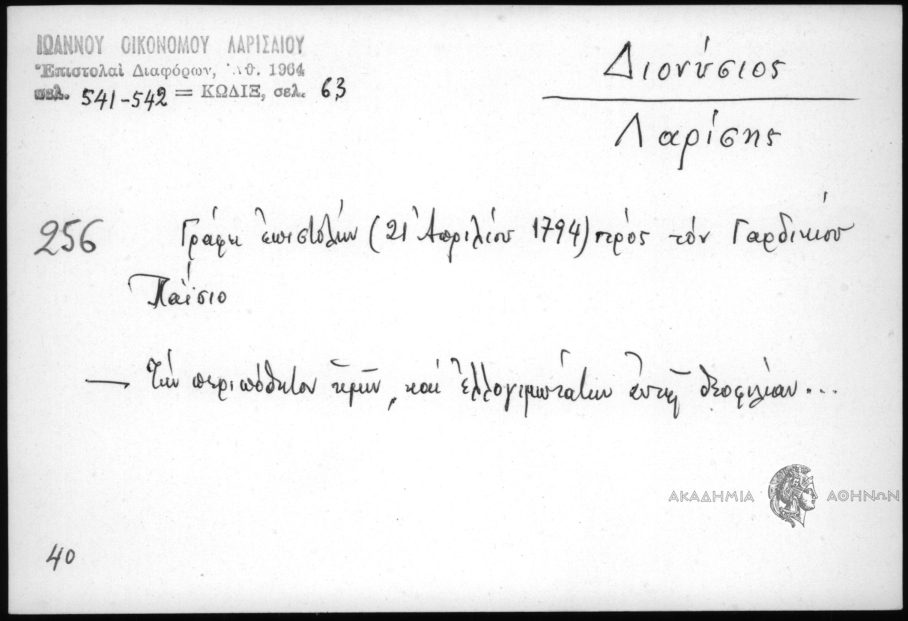 ΙΩΑΝΝΟΥ ΟΙΚΟΝΟΜΟΥ ΛΑΡΙΣΑΙΟΥ
Ἐπιστολαὶ Διαφόρων, Ἀθ. 1964
σελ. 541-542 = ΚΩΔΙΞ, σελ. 63
Διονύσιος
Λαρίσης
256 Γράφει ἐπιστολὴν (21 Ἀπριλίου 1794) πρὸς τὸν Γαρδικίου
Παΐσιο
— Τὴν περιπόθητον ἡμῖν, καὶ ἐλλογιμωτάτην αὐτῆς θεοφιλίαν...
ΑΚΑΔΗΜΙΑ ΑΘΗΝΩΝ
40